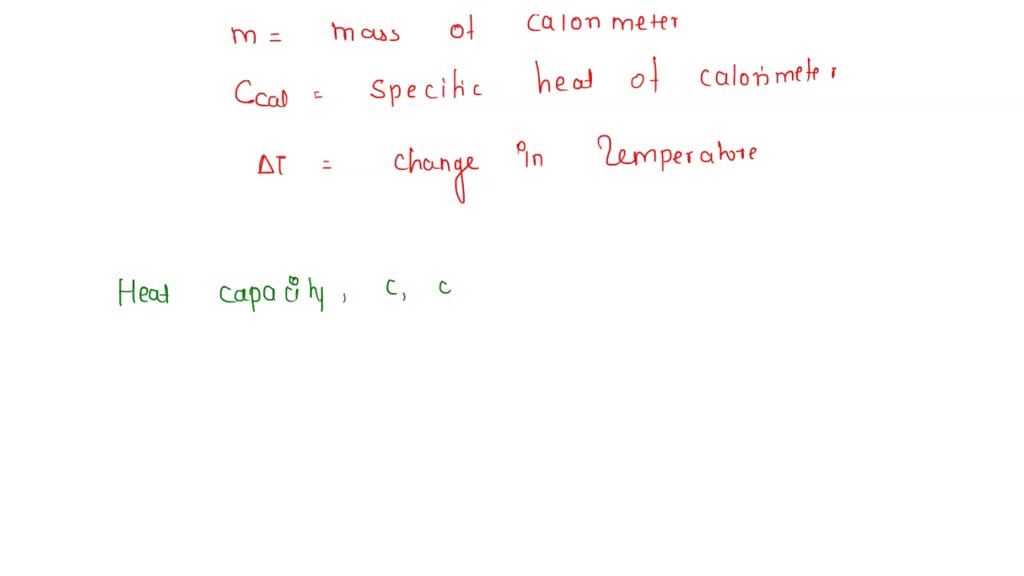 m = mass of calorimeter
Ccal = specific heat of calorimeter
ΔT = change in Temperature
Heat capacity, c, c